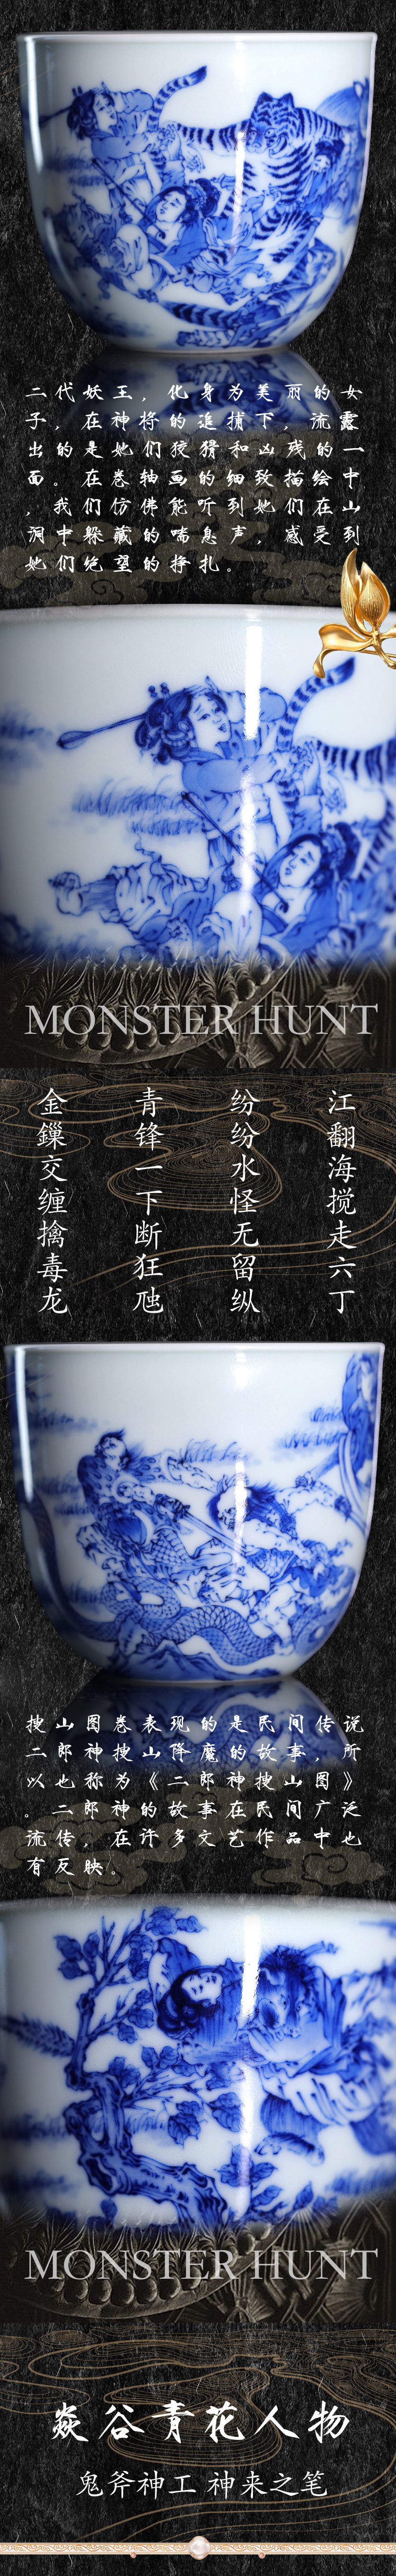 二代妖王，化身为美丽的女
子，在神将的追捕下，流露
出的是她们狡猾和凶残的一
面。在卷轴画的细致描绘中
，我们仿佛能听到她们在山
洞中躲藏的喘息声，感受到
她们绝望的挣扎。
MONSTER HUNT
江翻海搅走六丁
纷纷水怪无留纵
青锋一下断狂虺
金鏁交缠擒毒龙
搜山图卷表现的是民间传说
二郎神搜山降魔的故事，所
以也称为《二郎神搜山图》
。二郎神的故事在民间广泛
流传，在许多文艺作品中也
有反映。
MONSTER HUNT
焱谷青花人物
鬼斧神工 神来之笔